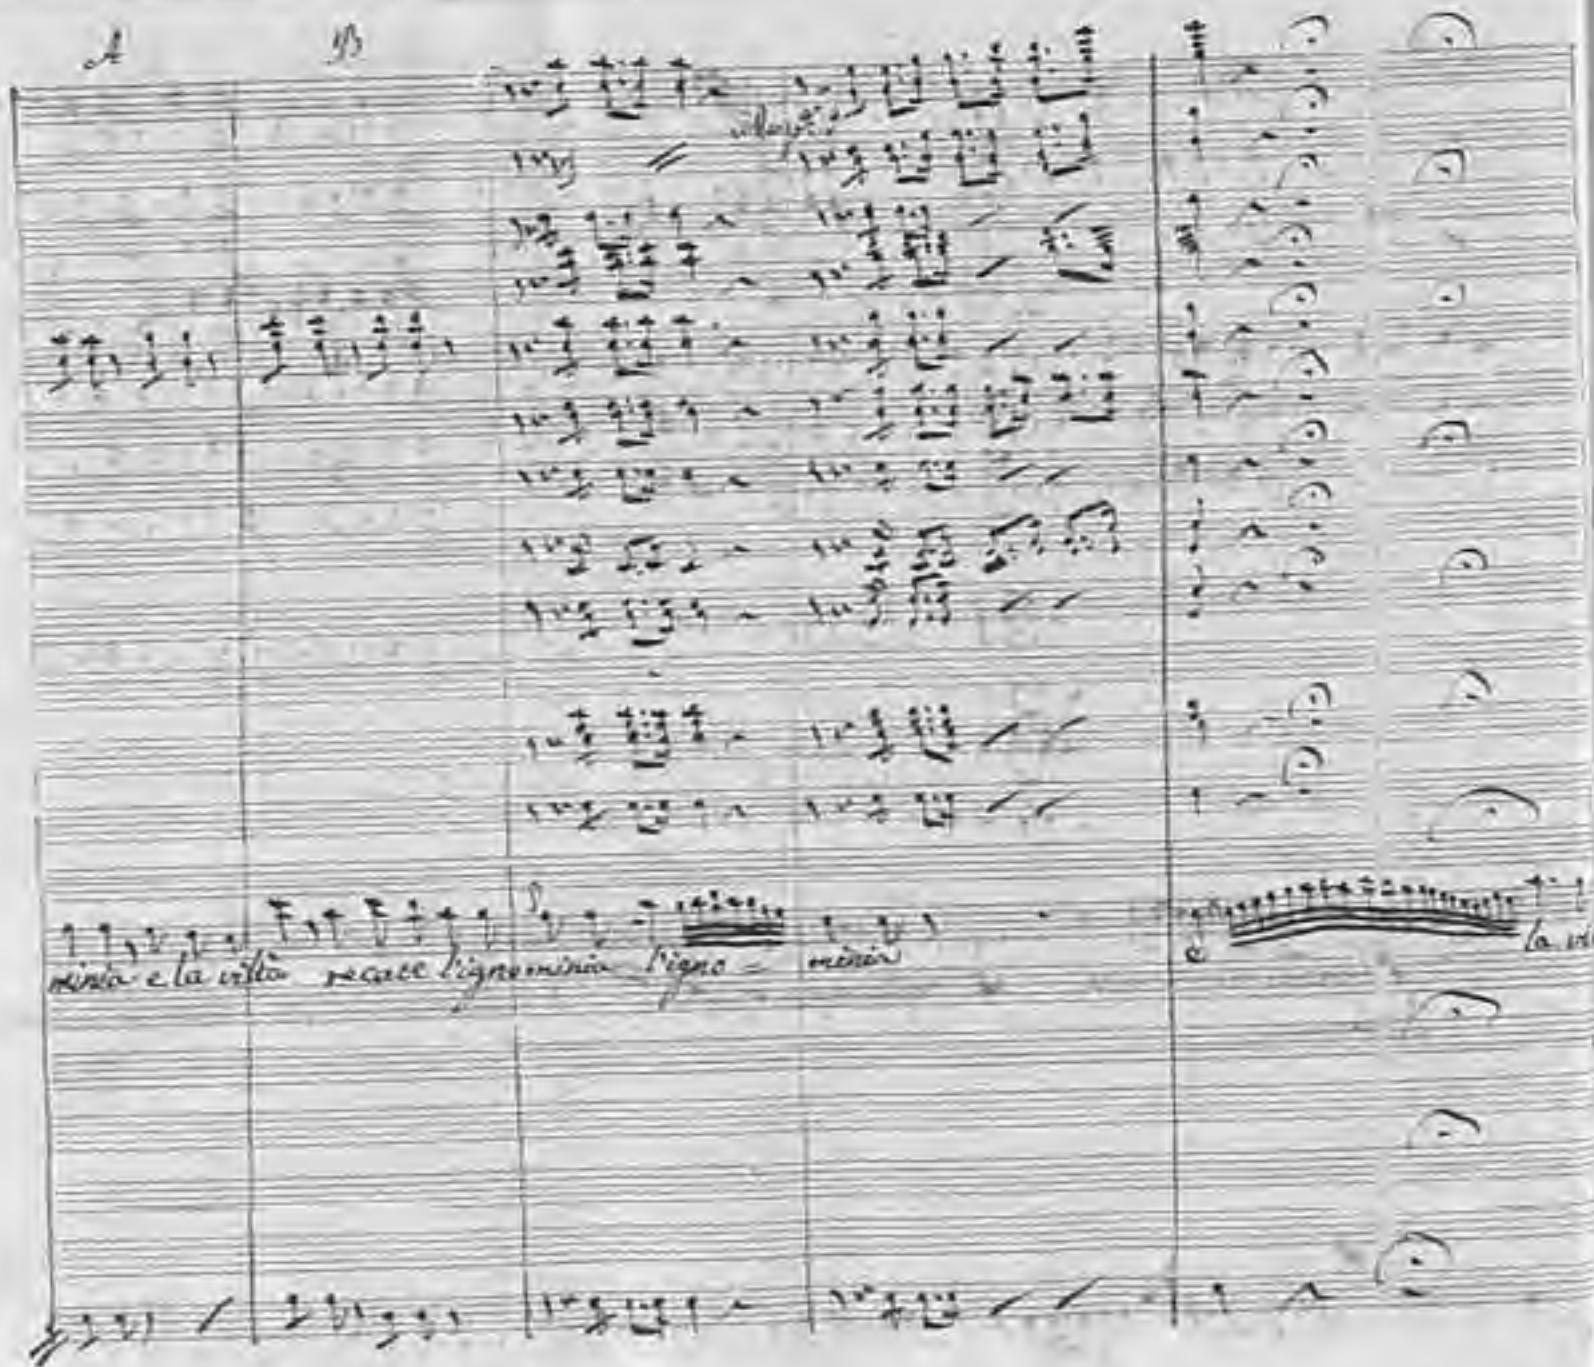 A B
minia e la viltà recace l'ignominia l'igno = minia e la vil